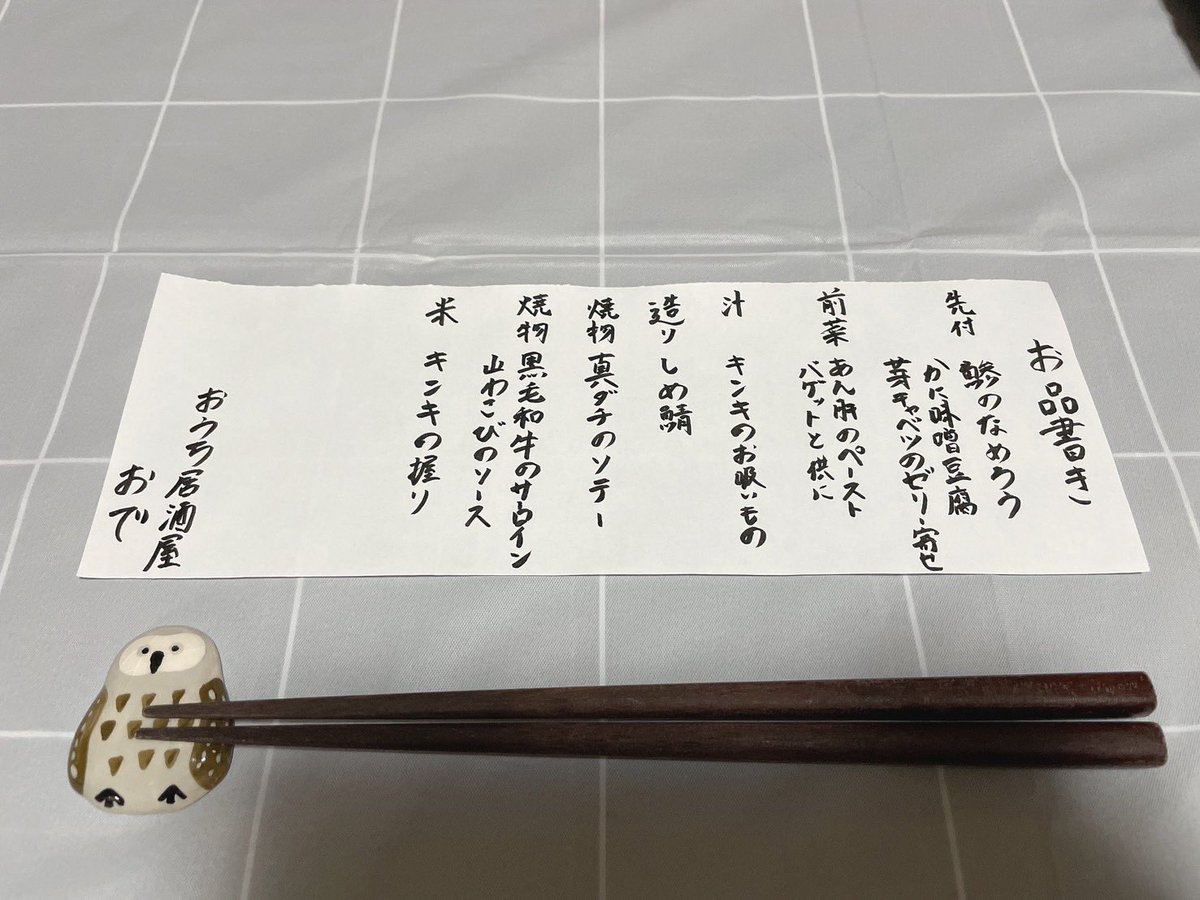 お品書き
先付 鯵のなめろう
かに味噌豆腐
芽キャベツのゼリー寄せ
前菜 あん肝のペースト
バゲットと供に
汁 キンキのお吸いもの
造り しめ鯖
焼物 真ダチのソテー
焼物 黒毛和牛のサーロイン
山わさびのソース
米 キンキの握り
おうち居酒屋
おで